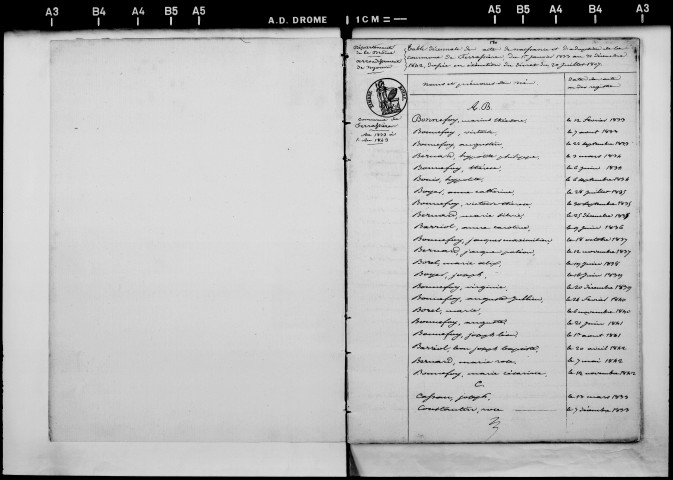 A3 B4 A4 B5 A5 A.D. DROME 1CM A5 B5 A4 B4 A3
Département
de la Drôme
arrondissement
de nyons
commune de
Ferrassières
Table décennale des actes de naissance et d'adoption de la
commune de Ferrassières, du 1er janvier 1833 au 31 décembre
1842, dressée en exécution du décret du 20 juillet 1807.
noms et prénoms des nés. Date des actes
au des registres
A. B.
Bonnefoy, marius théodore. le 12 février 1833
Bonnefoy, victoire. le 7 aout 1833
Bonnefoy, augustin. le 22 septembre 1833
Bernard, hyppolite philippe. le 3 mars 1834
Bonnefoy, thérèse. le 6 juin 1834
Bonis, hyppolite. le 6 septembre 1834
Boyer, anne catherine. le 28 juillet 1835
Bonnefoy, victoire thérèse. le 20 septembre 1835
Bernard, marie silvie. le 25 décembre 1835
Barriol, anne caroline. le 9 juin 1836
Bonnefoy, jacques maximilien. le 18 octobre 1837
Bernard, jacques julien. le 12 novembre 1837
Borel, marie le 19 juin 1838
Boyer, joseph. le 18 juin 1839
Bonnefoy, virginie. le 20 décembre 1839
Bonnefoy, auguste le 26 février 1840
Borel, marie. le 6 novembre 1840
Bonnefoy, auguste. le 21 juin 1841
Bonnefoy, joseph le 1er aout 1841
Barriol, leon joseph baptiste. le 20 avril 1842
Bernard, marie rose. le 7 mai 1842
Bonnefoy, marie césarine. le 14 novembre 1842
C.
joseph. le 13 mars 1833
Constantin, rose le 7 décembre 1833